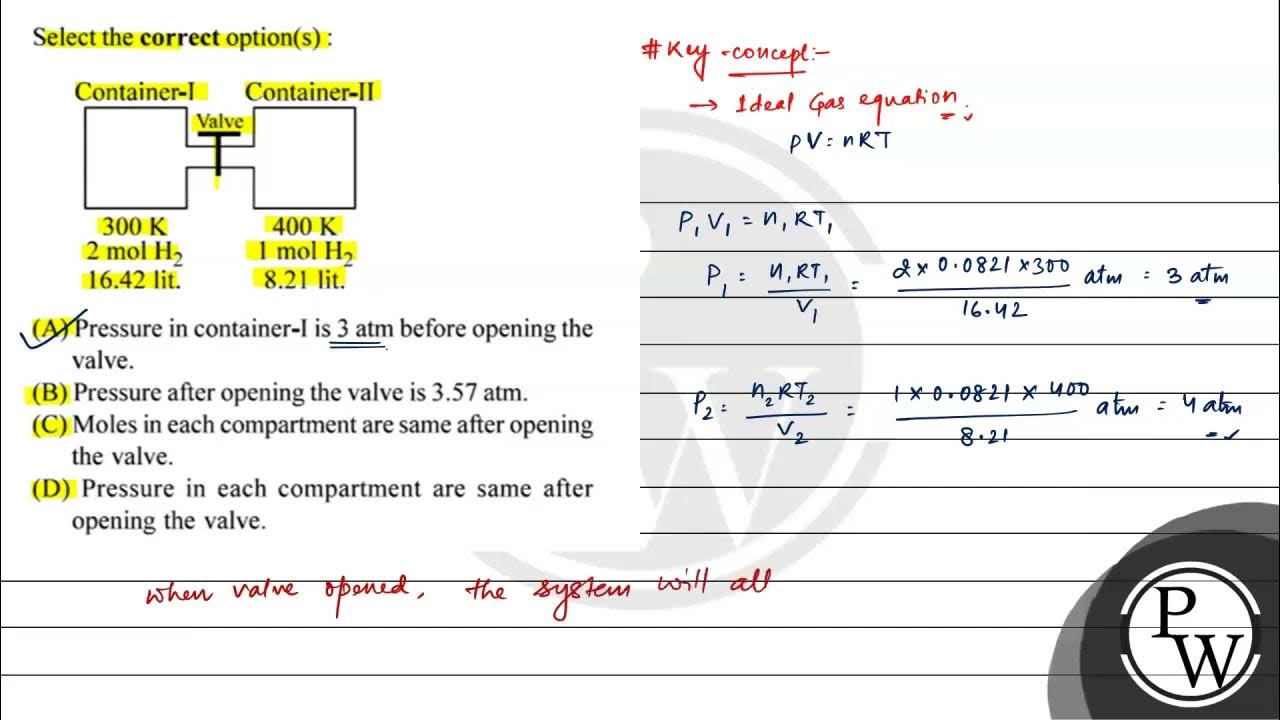 Select the correct option(s) :
Container-I Container-II
Valve
300 K 400 K
2 mol H₂ 1 mol H₂
16.42 lit. 8.21 lit.
(A) Pressure in container-I is 3 atm before opening the
valve.
(B) Pressure after opening the valve is 3.57 atm.
(C) Moles in each compartment are same after opening
the valve.
(D) Pressure in each compartment are same after
opening the valve.
# Key concept:-
→ Ideal Gas equation.
PV = nRT
P₁V₁ = n₁RT₁
P₁ = n₁RT₁/V₁ = 2 × 0.0821 × 300/16.42 atm = 3 atm
P₂ = n₂RT₂/V₂ = 1 × 0.0821 × 400/8.21 atm = 4 atm
when valve opened, the system will all
PW